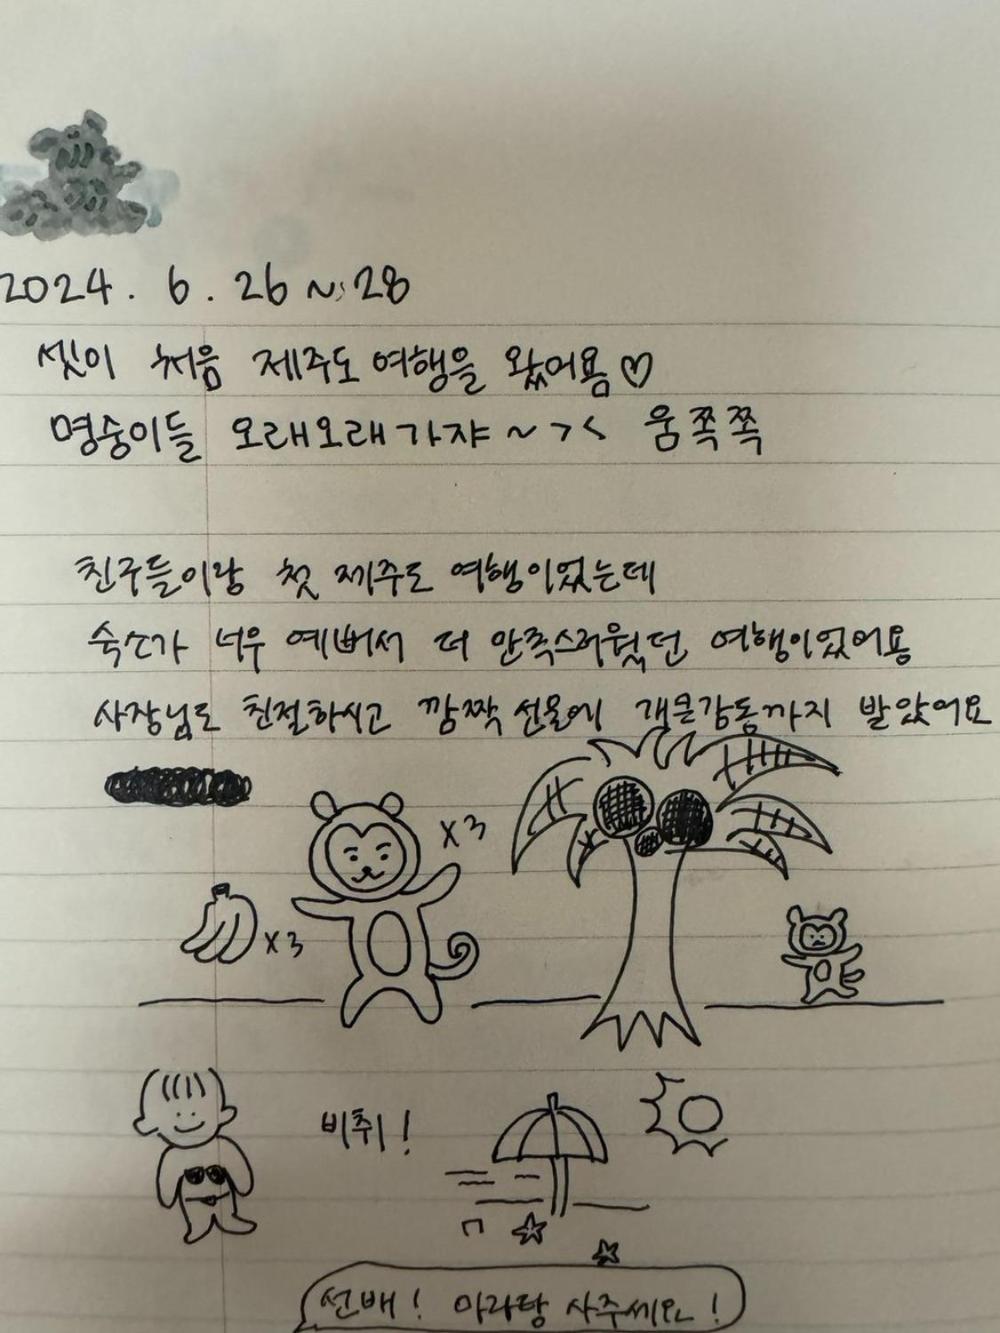 2024. 6. 26 ~ 28
셋이 처음 제주도 여행을 왔어욤♡
명숭이들 오래오래가쟈~ㄱㅅ 움쪽쪽
친구들이랑 첫 제주도 여행이었는데
숙소가 너무 예뻐서 더 만족스러웠던 여행이었어용
사장님도 친절하시고 깜짝 선물에 갬큰감동까지 받았어요
x3
x3
비취!
선배! 마라탕 사주세요!